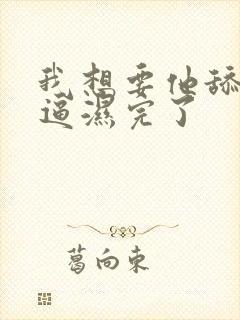 我想要他舔
逼濕完了
葛向東